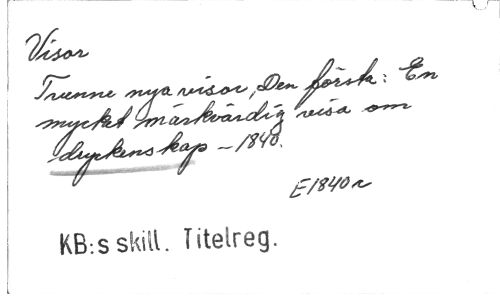 Visor
Tvenne nya visor, Den försk: En
mycket märkvärdig visa om
dryckenskap – 1840.
E1840n
KB:s skill. Titelreg.